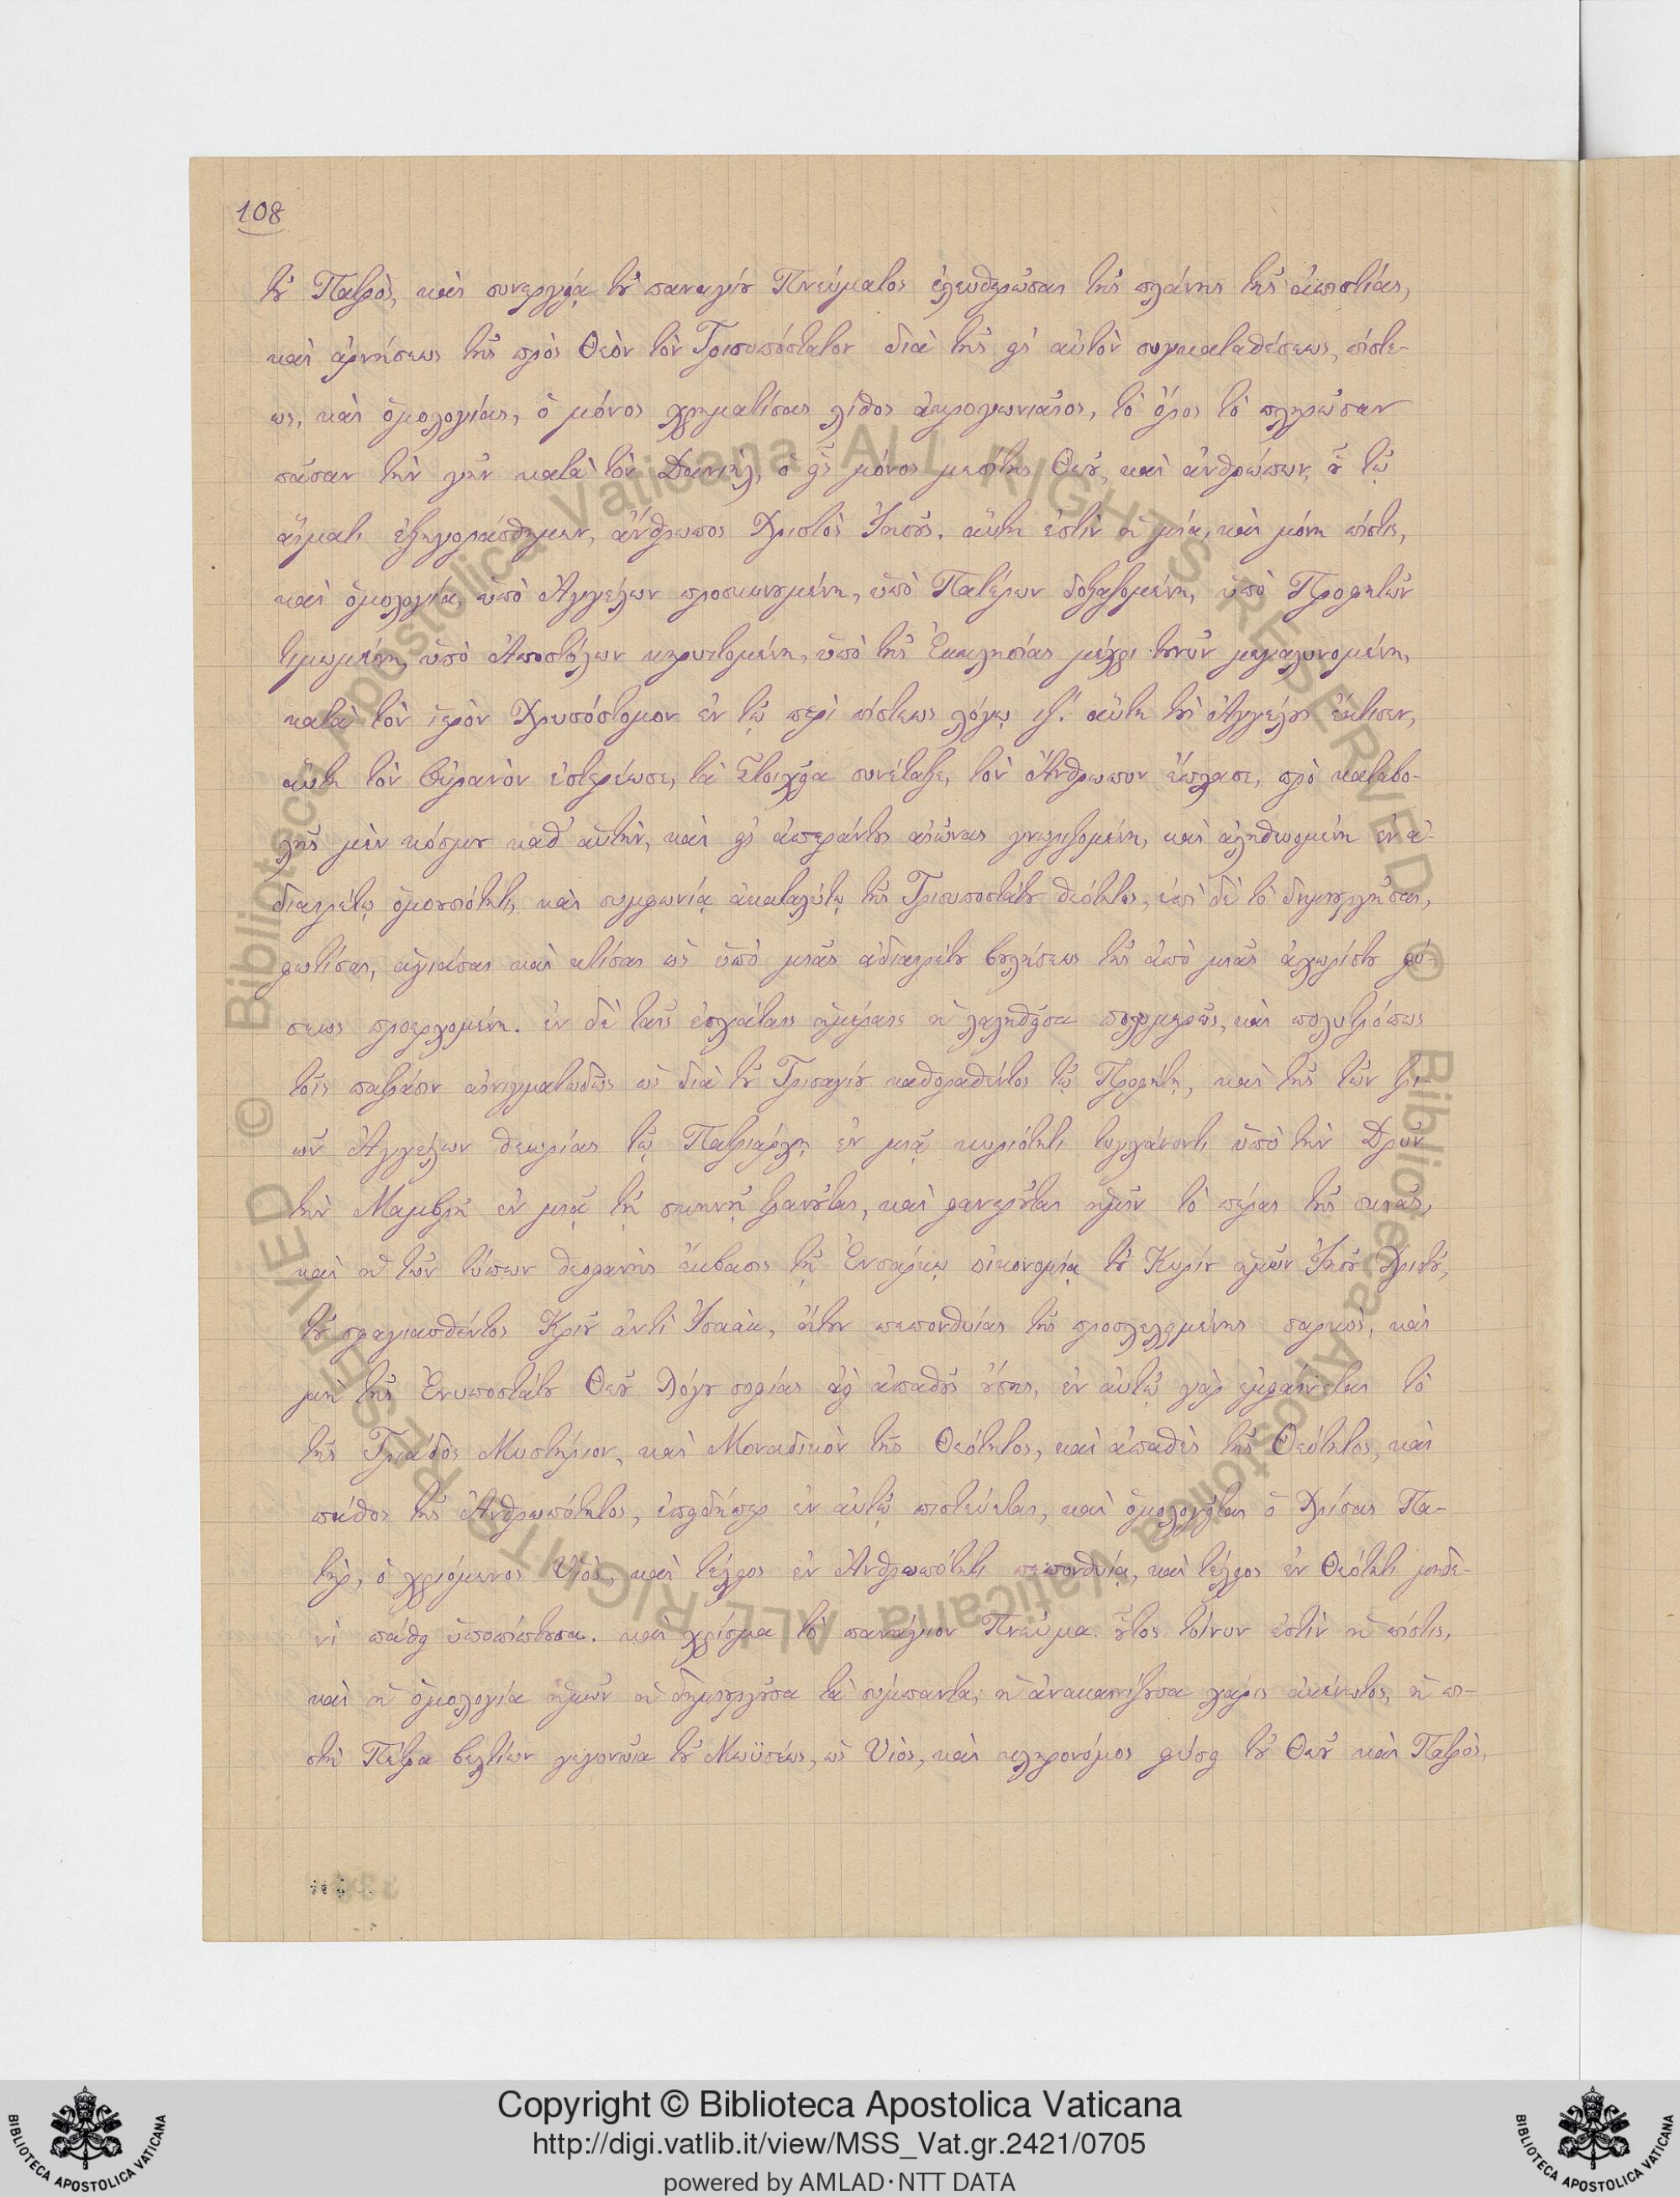 108
τοῦ Πατρὸς, καὶ συνεργείᾳ τοῦ παναγίου Πνεύματος ἐλευθερώσας τῆς πλάνης τῆς ἀπιστίας,
καὶ ἀρνήσεως τῆς πρὸς Θεὸν τὸν Τρισυπόστατον διὰ τῆς εἰς αὐτὸν συγκαταθέσεως, πίστε-
ως, καὶ ὁμολογίας, ὁ μόνος χρηματίσας λίθος ἀκρογωνιαῖος, τὸ ὄρος τὸ πληρῶσαν
πᾶσαν τὴν γῆν κατὰ τὸν Δανιὴλ, ὁ εἷς μόνος μεσίτης Θεοῦ, καὶ ἀνθρώπων, οὗ τῷ
αἵματι ἐξηγοράσθημεν, ἄνθρωπος Χριστὸς Ἰησοῦς. αὕτη ἐστὶν ἡ μία, καὶ μόνη πίστις,
καὶ ὁμολογία, ὑπὸ Ἀγγέλων προσκυνουμένη, ὑπὸ Πατέρων δοξαζομένη, ὑπὸ Προφητῶν
τιμωμένη, ὑπὸ Ἀποστόλων κηρυττομένη, ὑπὸ τῆς Ἐκκλησίας μέχρι τουνῦν μεγαλυνομένη,
κατὰ τὸν ἱερὸν Χρυσόστομον ἐν τῷ περὶ πίστεως λόγῳ αὕτη τοὺς Ἀγγέλους ἔκτισεν,
αὕτη τὸν Οὐρανὸν ἐστερέωσε, τὰ Στοιχεῖα συνέταξε, τὸν Ἄνθρωπον ἔπλασε, πρὸ καταβο-
λῆς μὲν κόσμου καθ' αὑτὴν, καὶ εἰς ἀπεράντους αἰῶνας γνωριζομένη, καὶ ἀληθευομένη ἐν ἀ-
διαιρέτῳ ὁμοουσιότητι, καὶ συμφωνίᾳ ἀκαταλύτῳ τῆς Τρισυποστάτου θεότητος, ἐπὶ δὲ τὸ δημιουργῆσαι,
φωτίσαι, ἁγιάσαι καὶ κτίσαι ὡς ὑπὸ μιᾶς ἀδιαιρέτου βουλήσεως τῆς ἀπὸ μιᾶς ἀχωρίστου φύ-
σεως προερχομένη. ἐν δὲ ταῖς ἐσχάταις ἡμέραις ἡ λαληθεῖσα πολυμερῶς, καὶ πολυτρόπως
τοῖς πατράσιν αἰνιγματωδῶς ὡς διὰ τοῦ Τρισαγίου καθοραθέντος τῷ Προφήτῃ, καὶ τῆς τῶν τρι-
ῶν Ἀγγέλων θεωρίας τῷ Πατριάρχῃ ἐν μιᾷ κυριότητι τυγχάνοντι ὑπὸ τὴν Δρῦν
τὴν Μαμβρῆ ἐν μιᾷ τῇ σκηνῇ τρανοῦται, καὶ φανεροῦται ἡμῖν τὸ πέρας τῆς σκιᾶς,
καὶ ἡ τῶν τύπων θεοφανὴς ἔκβασις τῇ Ἐνσάρκῳ οἰκονομίᾳ τοῦ Κυρίου ἡμῶν Ἰησοῦ Χριστοῦ,
τοῦ σφαγιασθέντος Κριοῦ ἀντὶ Ἰσαὰκ, ἤτοι πεπονθυίας τῆς προσλελημμένης σαρκὸς, καὶ
μὴ τῆς Ἐνυποστάτου Θεοῦ Λόγου σοφίας ἀεὶ ἀπαθοῦς οὔσης, ἐν αὐτῷ γὰρ ἐμφαίνεται τὸ
τῆς Τριάδος Μυστήριον, καὶ Μοναδικὸν τῆς Θεότητος, καὶ ἀπαθὲς τῆς Θεότητος, καὶ
πάθος τῆς Ἀνθρωπότητος, ἐπειδήπερ ἐν αὐτῷ πιστεύεται, καὶ ὁμολογεῖται ὁ Χρίσας Πα-
τὴρ, ὁ χριόμενος Υἱὸς, καὶ τέλειος ἐν Ἀνθρωπότητι πεπονθυίᾳ, καὶ τέλειος ἐν Θεότητι μηδε-
νὶ πάθει ὑποπίπτουσα. καὶ χρίσμα τὸ πανάγιον Πνεῦμα. οὗτος τοίνυν ἐστὶν ἡ πίστις,
καὶ ἡ ὁμολογία ἡμῶν ἡ δημιουργοῦσα τὰ σύμπαντα, ἡ ἀνακαινίζουσα χάρις ἀκένωτος, ἡ πι-
στὴ Πέτρα βελτίων γεγονυῖα τοῦ Μωϋσέως, ὡς Υἱὸς, καὶ κληρονόμος φύσει τοῦ Θεοῦ καὶ Πατρὸς,
Copyright © Biblioteca Apostolica Vaticana
http://digi.vatlib.it/view/MSS_Vat.gr.2421/0705
powered by AMLAD·NTT DATA
BIBLIOTECA APOSTOLICA VATICANA
BIBLIOTECA APOSTOLICA VATICANA
© Biblioteca Apostolica Vaticana ALL RIGHTS RESERVED
© Biblioteca Apostolica Vaticana ALL RIGHTS RESERVED